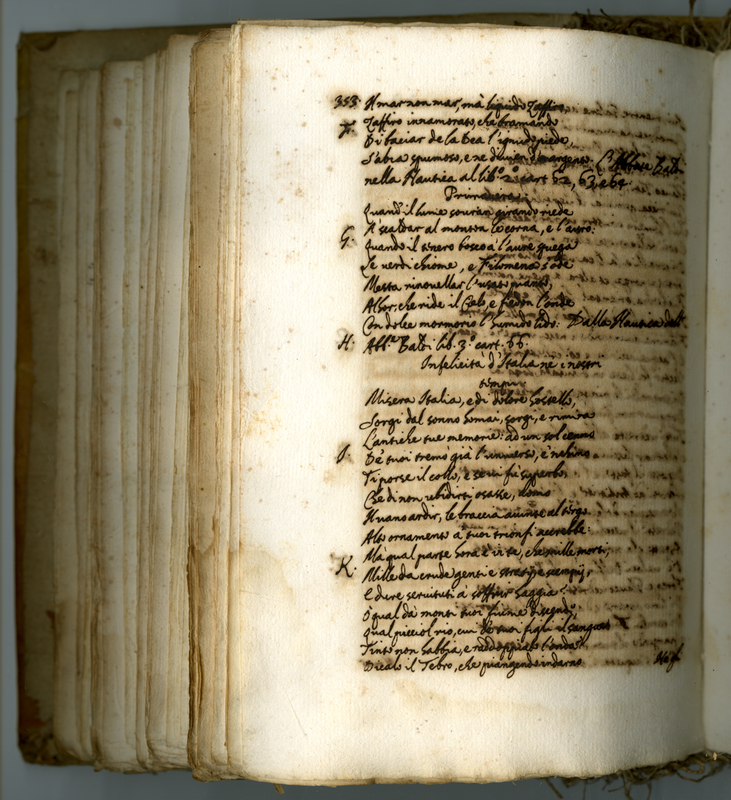 353. Il mar non mar, mà liquido Zaffiro
F. Zaffiro innamorato, che bramando
Di baciar de la Dea l'ignudo piede,
S'alza spumoso, e ne divien d'argento. L'Abbate Baldi
nella Nautica al lib.° 2.° cart. 62, 63, e 64
Primavera.
Quand'il lume sovran girando riede
G. A scaldar al monton le corna, e l'auro:
Quando il tenero bosco a l'aure spiega
Le verdi chiome, e Filomena s'ode
Mesta rinovellar l'usato pianto,
Alhor, che ride il Cielo, e fiedon l'onde
Con dolce mormorio l'humido lido. Dalla Nautica dell'
H. Abb.te Baldi lib. 3.° cart. 66.
Infelicità d'Italia ne i nostri
tempi.
Misera Italia, e di dolore hostello,
Sorgi dal sonno homai, sorgi, e rimira
L'antiche tue memorie: ad un sol cenno
I. De' tuoi tremò già l'universo, e 'nchino
Ti porse il collo, e se vi fù superbo,
Che di non ubidirti osasse, domo
Il vano ardir, le braccia avinte al tergo
Alto ornamento a' tuoi trionfi accrebbe:
Mà qual parte hora è in te, che mille morti,
K. Mille da crude genti e stratij e scempij,
E dure servitùti à soffrir haggia?
O qual dà monti tuoi fiume
Qual picciol rio, cui de' tuoi figli il sangue
Tinto non habbia, e raddoppiato l'onda?
Dicalo il Tebro, che piangendo indarno